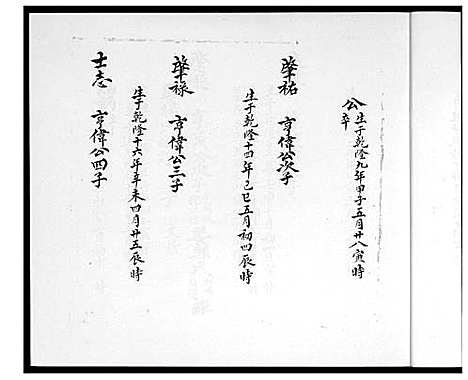 公生于乾隆九年甲子五月廿八寅時
卒
肇祐 亨偉公次子
生于乾隆十四年己巳五月初四辰時
肇祿 亨偉公三子
生于乾隆十六年辛未四月廿五辰時
士志 亨偉公四子